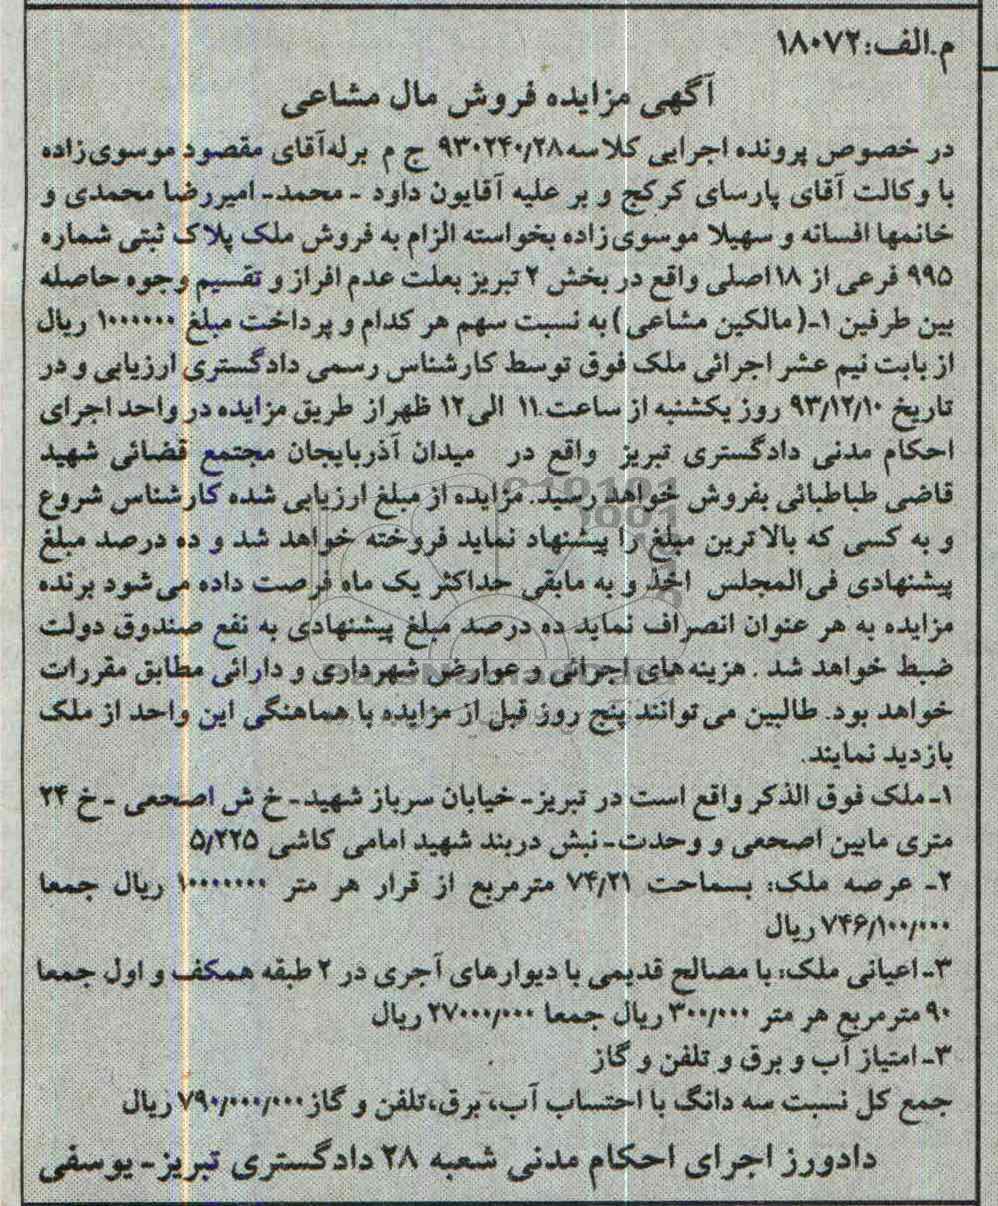 م.الف:۱۸۰۷۲
آگهی مزایده فروش مال مشاعی
در خصوص پرونده اجرایی کلاسه۹۳۰۲۴۰/۲۸ ج م برله‌آقای مقصود موسوی‌زاده
با وکالت آقای پارسای کرکج و بر علیه آقایون داود - محمد- امیررضا محمدی و
خانمها افسانه و سهیلا موسوی‌زاده بخواسته الزام به فروش ملک پلاک ثبتی شماره
۹۹۵ فرعی از ۱۸اصلی واقع در بخش ۲ تبریز بعلت عدم افراز و تقسیم وجوه حاصله
بین طرفین ۱-(مالکین مشاعی) به نسبت سهم هر کدام و پرداخت مبلغ ۱۰۰۰۰۰۰ ریال
از بابت نیم عشر اجرائی ملک فوق توسط کارشناس رسمی دادگستری ارزیابی و در
تاریخ ۹۳/۱۲/۱۰ روز یکشنبه از ساعت ۱۱ الی۱۲ ظهراز طریق مزایده در واحد اجرای
احکام مدنی دادگستری تبریز واقع در میدان آذربایجان مجتمع قضائی شهید
قاضی طباطبائی بفروش خواهد رسید. مزایده از مبلغ ارزیابی شده کارشناس شروع
و به کسی که بالاترین مبلغ را پیشنهاد نماید فروخته خواهد شد و ده درصد مبلغ
پیشنهادی فی‌المجلس اخذ و به مابقی حداکثر یک ماه فرصت داده می‌شود برنده
مزایده به هر عنوان انصراف نماید ده درصد مبلغ پیشنهادی به نفع صندوق دولت
ضبط خواهد شد . هزینه‌های اجرائی و عوارض شهرداری و دارائی مطابق مقررات
خواهد بود. طالبین می‌توانند پنج روز قبل از مزایده با هماهنگی این واحد از ملک
بازدید نمایند.
۱-ملک فوق الذکر واقع است در تبریز- خیابان سرباز شهید- خ ش اصحعی - خ ۲۴
متری مابین اصحعی و وحدت-نبش دربند شهید امامی کاشی ۵/۲۲۵
۲- عرصه ملک: بسماحت ۷۴/۲۱ مترمربع از قرار هر متر ۱۰۰۰۰۰۰۰ ریال جمعا
۷۴۶/۱۰۰/۰۰۰ ریال
۳-اعیانی ملک: با مصالح قدیمی با دیوارهای آجری در ۲ طبقه همکف و اول جمعا
۹۰ مترمربع هر متر ۳۰۰/۰۰۰ ریال جمعا ۲۷۰۰۰/۰۰۰ ریال
۳-امتیاز آب و برق و تلفن و گاز
جمع کل نسبت سه دانگ با احتساب آب، برق،تلفن و گاز ۷۹۰/۰۰۰/۰۰۰ ریال
دادورز اجرای احکام مدنی شعبه ۲۸ دادگستری تبریز- یوسفی